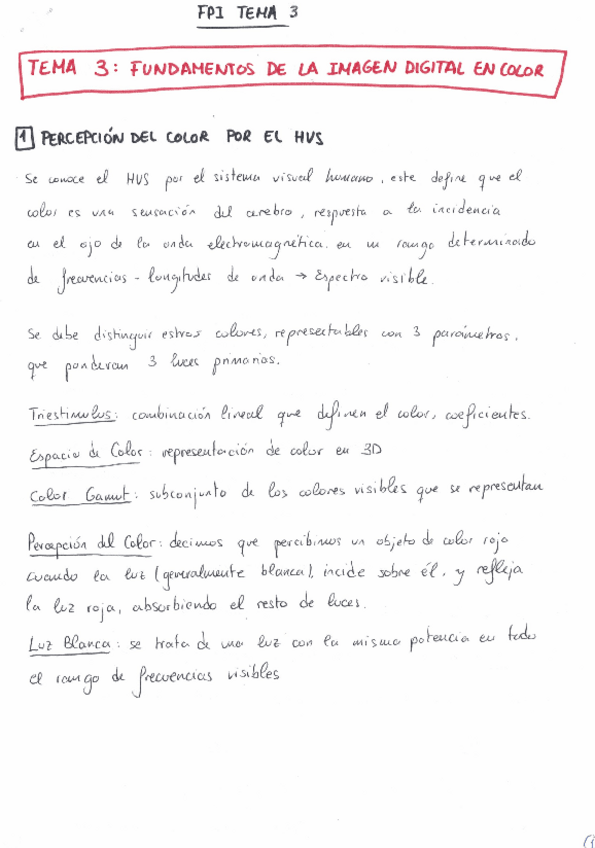 FPI TEMA 3
TEMA 3: FUNDAMENTOS DE LA IMAGEN DIGITAL EN COLOR
1 PERCEPCIÓN DEL COLOR POR EL HVS
Se conoce el HVS por el sistema visual humano, este define que el
color es una sensación del cerebro, respuesta a la incidencia
en el ojo de la onda electromagnética en un rango determinado
de frecuencias - longitudes de onda → Espectro visible.
Se debe distinguir estros colores, representables con 3 parámetros,
que ponderan 3 luces primarios.
Triestímulos: combinación lineal que definen el color, coeficientes.
Espacio de Color: representación de color en 3D
Color Gamut: subconjunto de los colores visibles que se representan
Percepción del Color: decimos que percibimos un objeto de color rojo
cuando la luz (generalmente blanca), incide sobre él, y refleja
la luz roja, absorbiendo el resto de luces.
Luz Blanca: se trata de una luz con la misma potencia en todo
el rango de frecuencias visibles